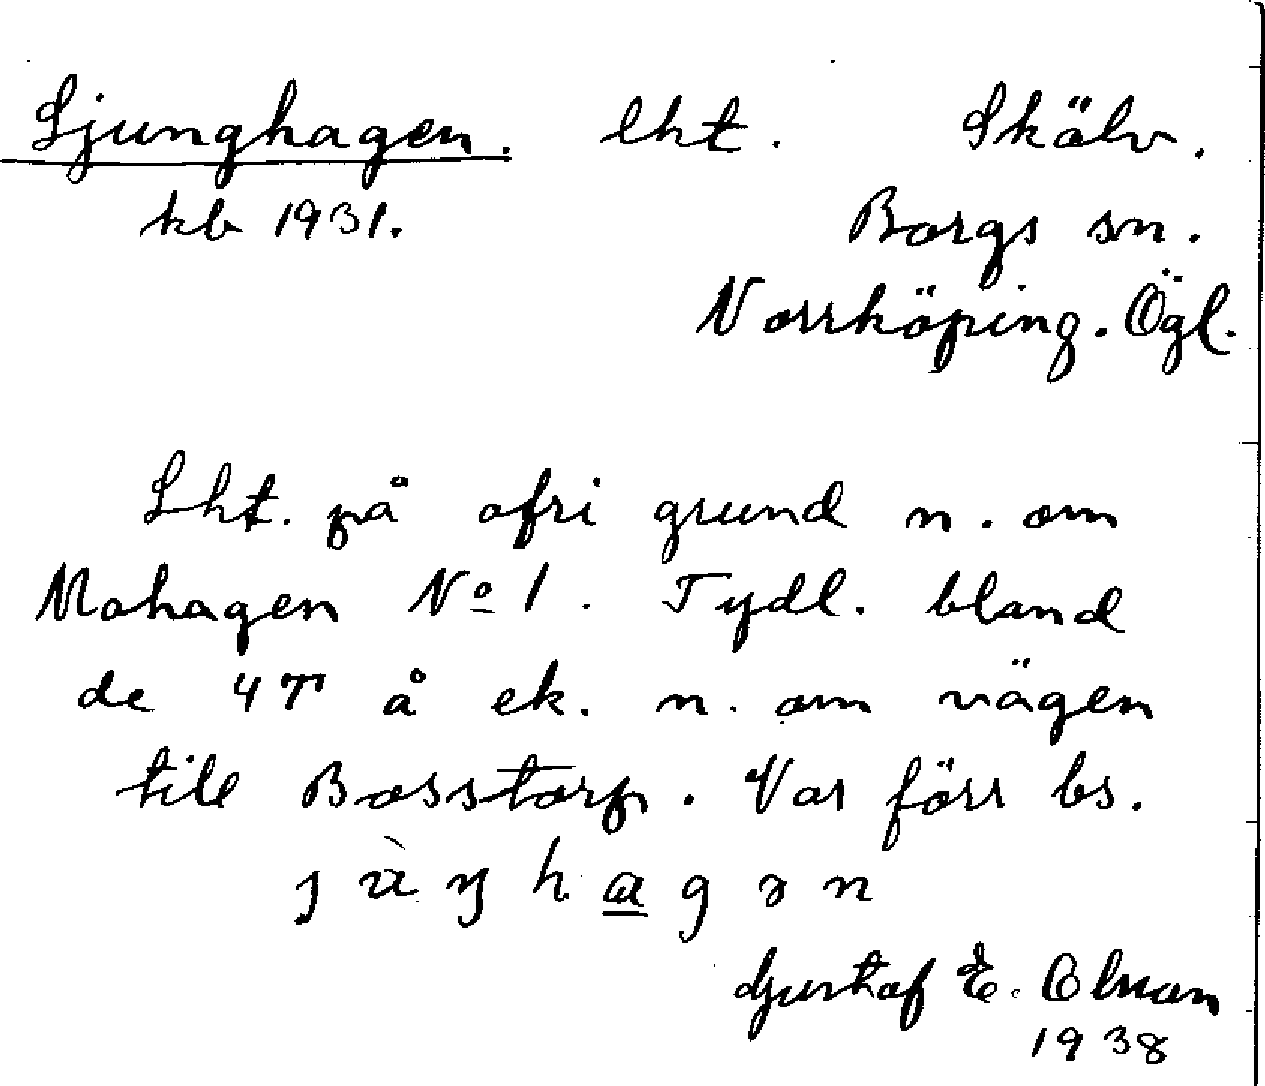 Ljunghagen. lht. Skälv.
kb 1931. Borgs sn.
Norrköping. Ögl.
Lht. på ofri grund n. om
Mohagen No 1. Tydl. bland
de 4 T å ek. n. om vägen
till Bosstorp. Var förr bs.
Gustaf E. Olsson
1938